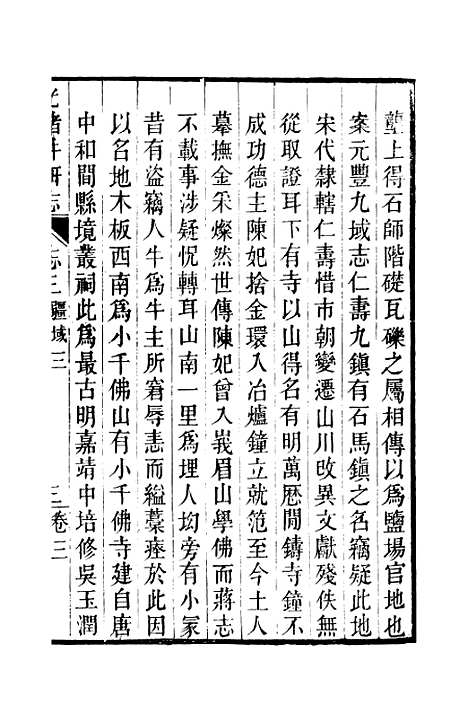 壟上得石師階礎瓦礫之屬相傳以爲鹽場官地也
案元豐九域志仁壽九鎮有石馬鎮之名竊疑此地
宋代隸轄仁壽惜市朝變遷山川攺異文獻殘佚無
從取證耳下有寺以山得名有明萬厯閒鑄寺鐘不
成功德主陳妃捨金環入冶爐鐘立就范至今土人
摹撫金采燦然世傳陳妃曾入峩眉山學佛而蔣志
不載事涉疑怳轉耳山南一里爲埋人坳旁有小冢
昔有盜竊人牛爲牛主所窘辱恚而縊藁瘞於此因
以名地木板西南爲小千佛山有小千佛寺建自唐
中和間縣境叢祠此爲最古明嘉靖中培修吳玉潤
光緒井研志
志二疆域三
卷三